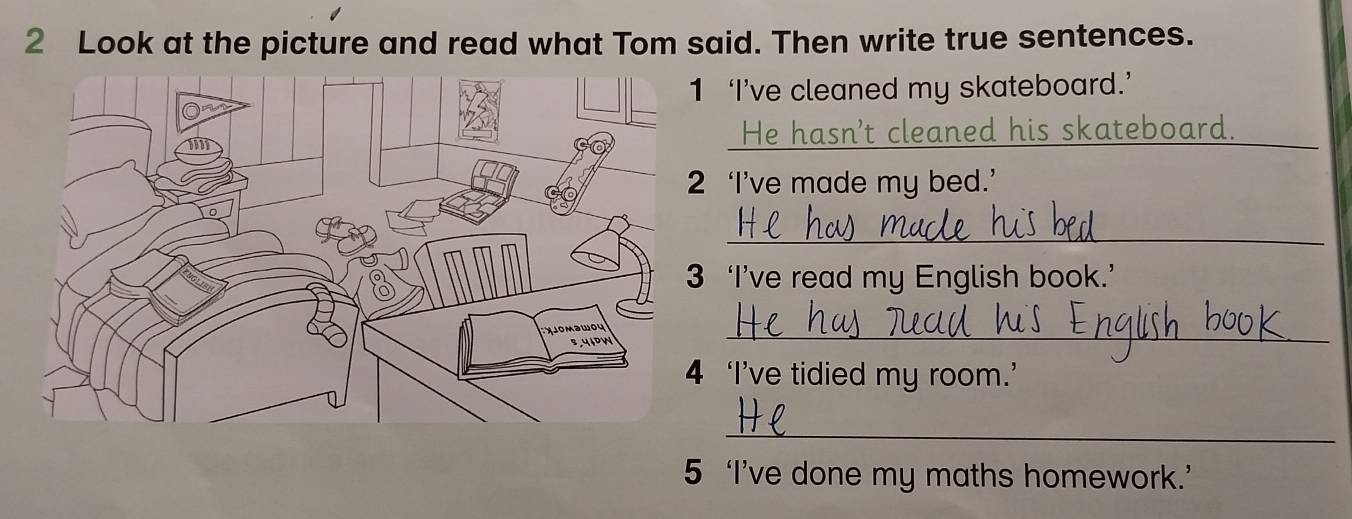 2 Look at the picture and read what Tom said. Then write true sentences.
1 ‘I’ve cleaned my skateboard.’
He hasn’t cleaned his skateboard.
2 ‘I’ve made my bed.’
He has made his bed
3 ‘I’ve read my English book.’
He has read his English book.
4 ‘I’ve tidied my room.’
He
5 ‘I’ve done my maths homework.’
ENGLISH
8
Math's
homework: